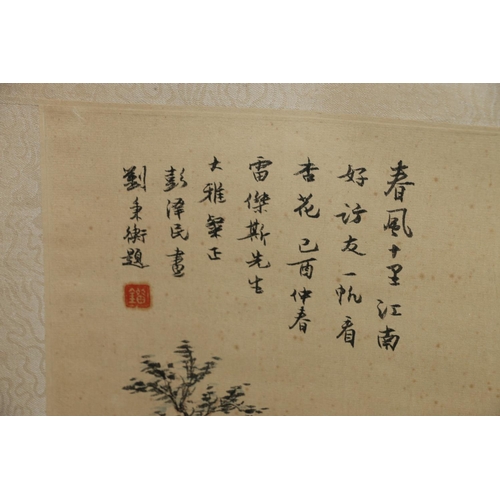 春風十里江南
好訪友一帆看
杏花己酉仲春
雷傑斯先生
大雅粲正
彭澤民畫
劉秉衡題